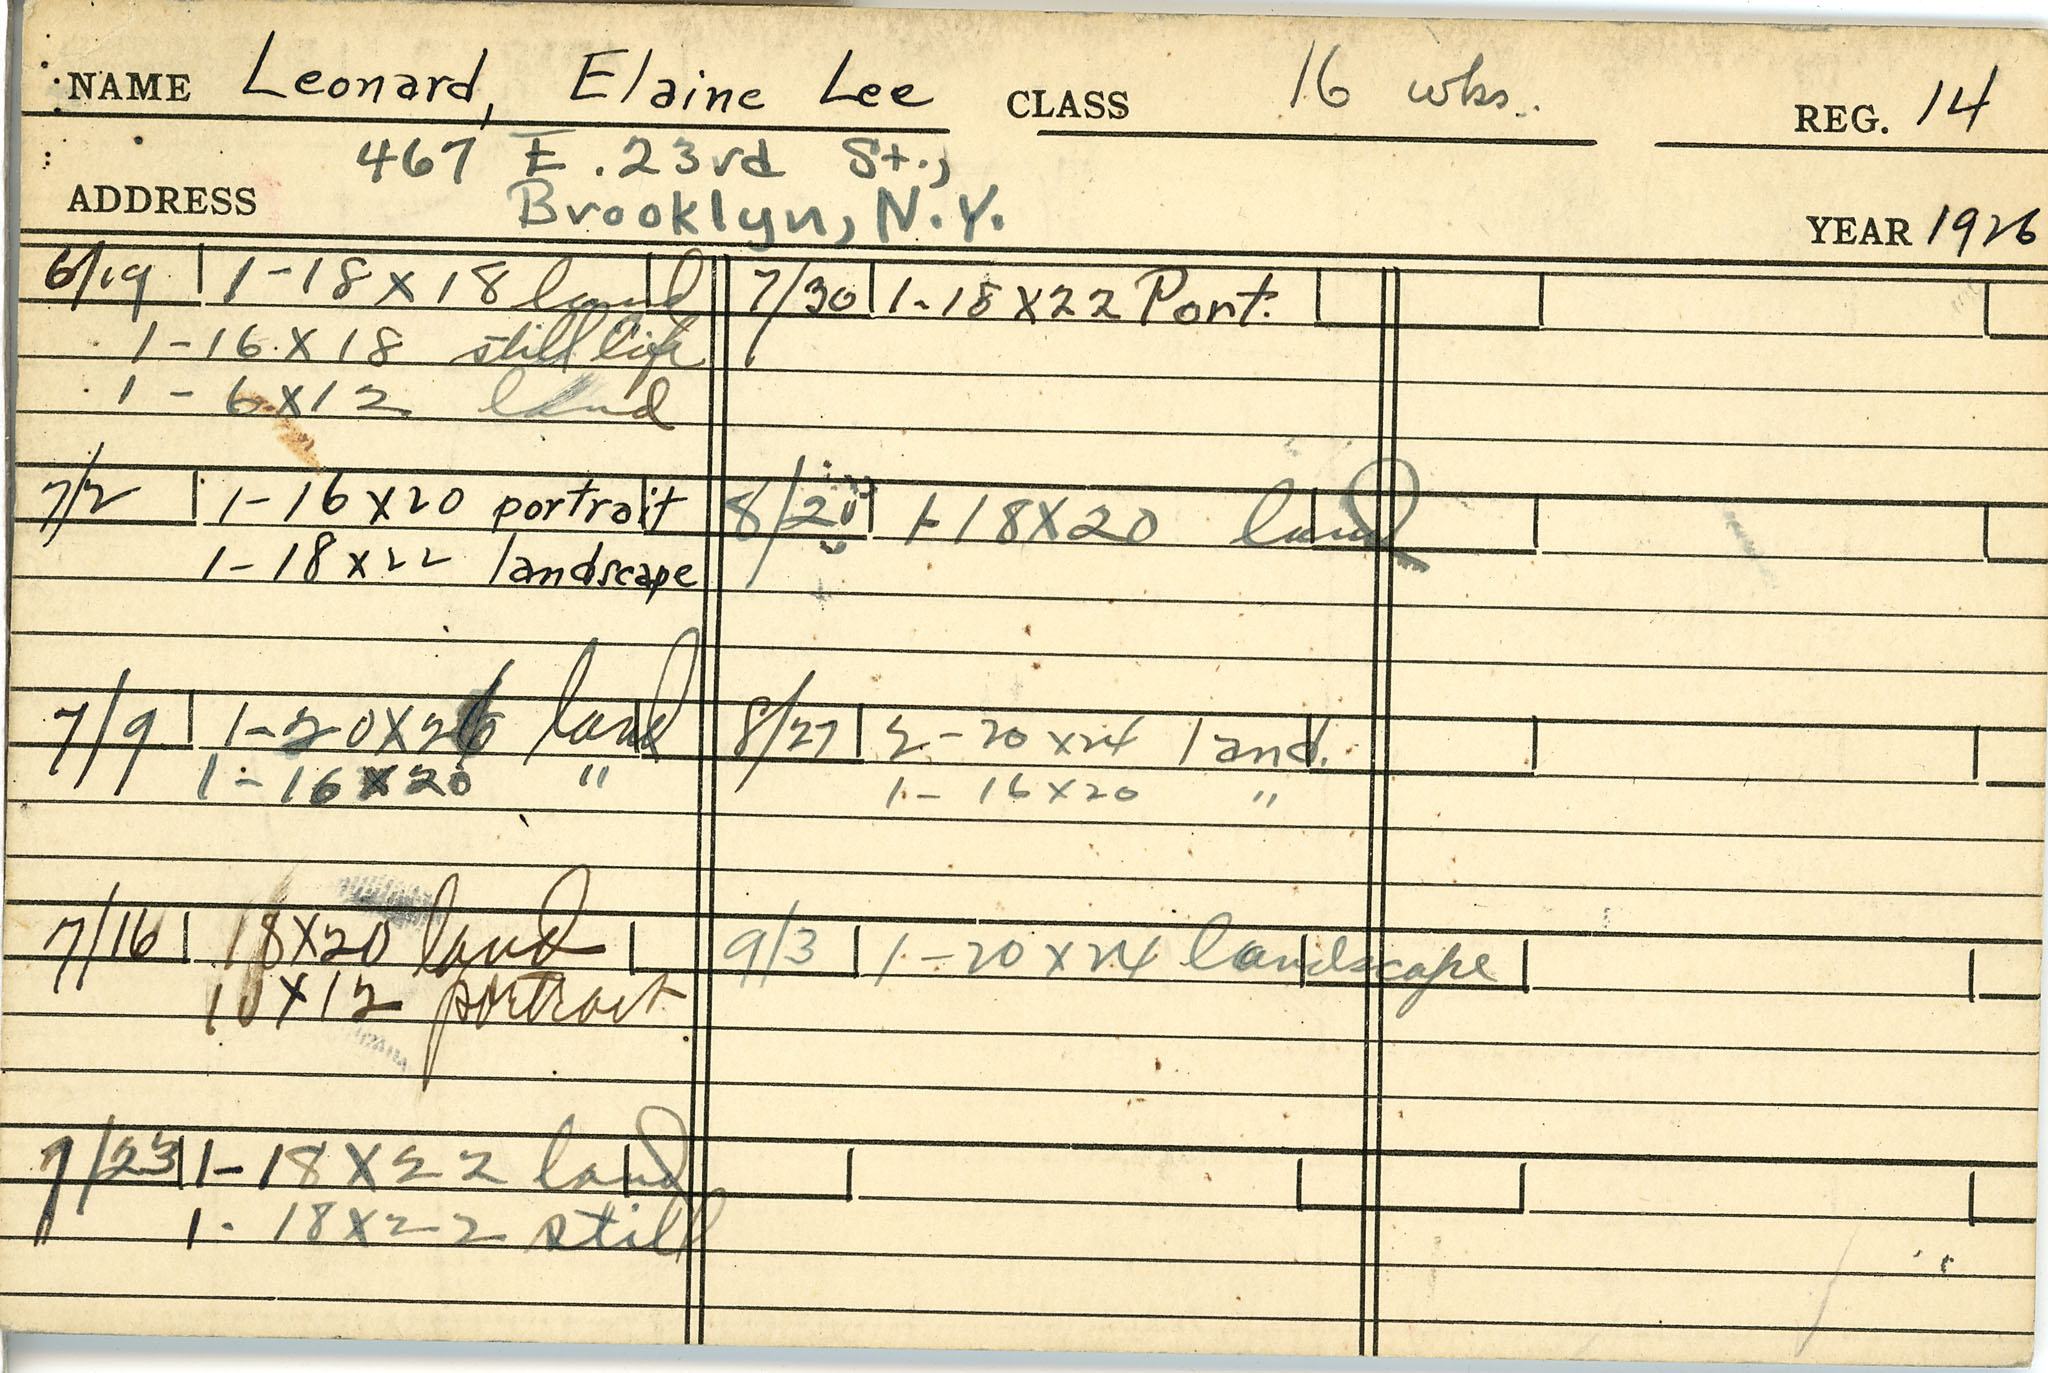 NAME Leonard, Elaine Lee CLASS 16 wks. REG. 14
467 E. 23rd St.,
ADDRESS Brooklyn, N.Y. YEAR 1926
6/19 1-18 x 18 land
1-16 x 18 still life
1-6 x 12 land
7/2 1-16 x 20 portrait
1-18 x 22 landscape
7/9 1-20 x 26 land
1-16 x 20 "
7/16 18 x 20 land
10 x 12 portrait
7/23 1-18 x 22 land
1-18 x 22 still
7/30 1-18 x 22 Port.
8/20 1-18 x 20 land
8/27 2-20 x 24 land.
1-16 x 20 "
9/3 1-20 x 24 landscape